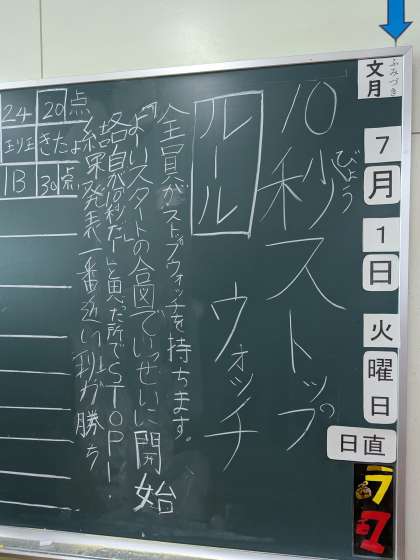 文月
ふみづき
7
月
1
日
火
曜
日
日直
10秒ストップ
びょう
ウォッチ
ルール
全員がストップウォッチを持ちます。
『よーいスタート』の合図でいっせいに開始
各自が10秒だ!と思った所でSTOP!
結果発表一番近い班が勝ち
24
20点
きたよ
1B
30点